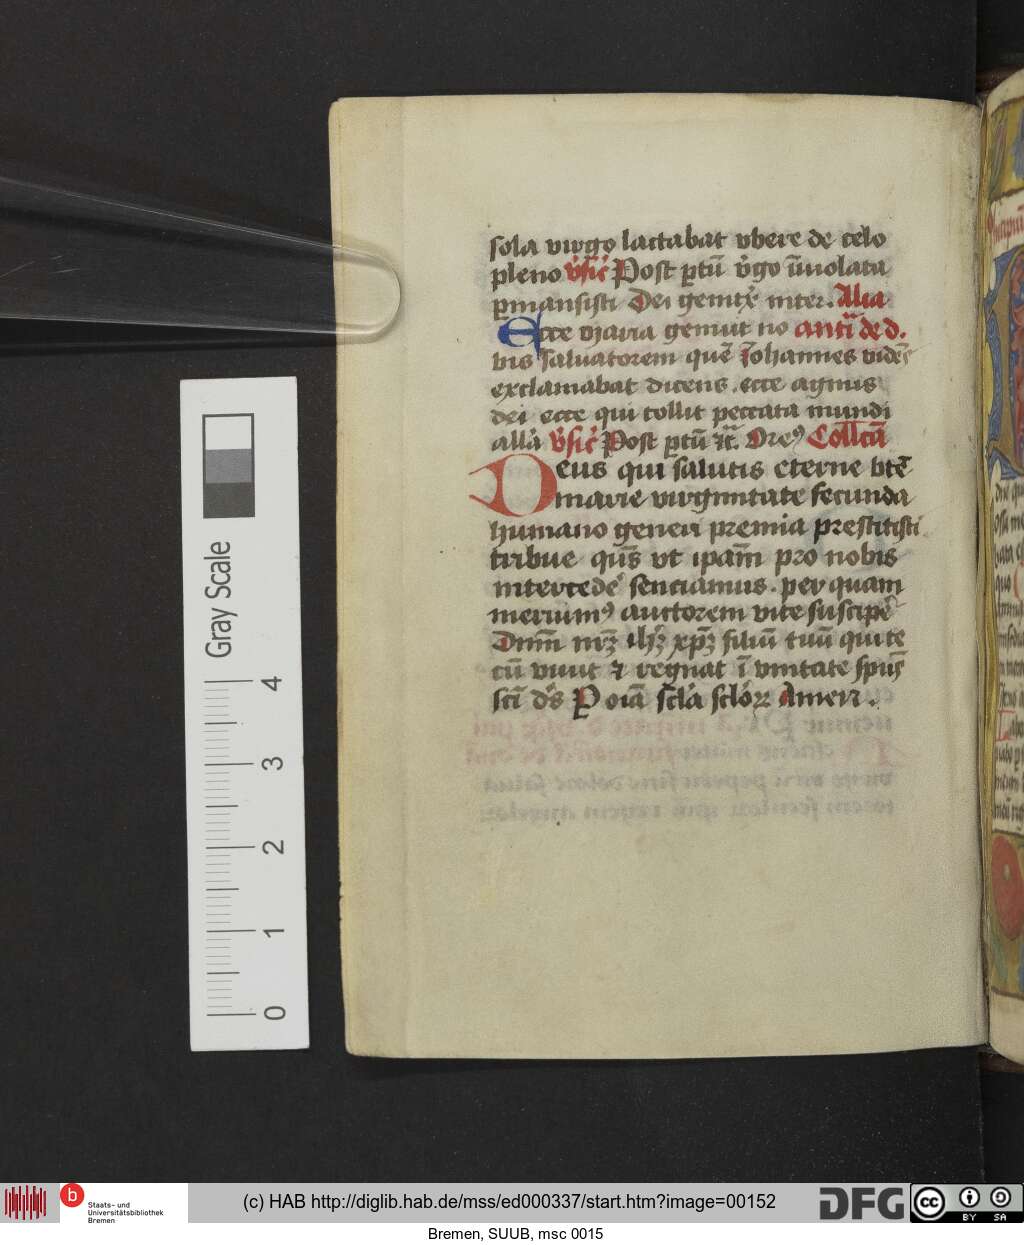 sola virgo lactabat vbere de celo
pleno v̉sic̉ Post ptū v̉go īuiolata
pmansisti Dei genitx̉ inter. Alia
Ecce maria genuit no antī de d.
bis saluatorem quē Iohannes vidēs
exclamabat dicens . ecce agnus
dei ecce qui tollit peccata mundi
allā v̉sic̉ Post ptū ꝛc̄. Oreꝰ Collc̄ā
Deus qui salutis eterne btē
marie virginitate fecunda
humano generi premia prestitisti
tribue qūs vt ipam̄ pro nobis
intercedē sentiamus . per quam
meruimꝰ auctorem vite suscipē
Dnm̄ nrꝫ ihꝫ xp̄ꝫ filiū tuū qui te
cū viuit ⁊ regnat ī vnitate spūs
scī ds̄ P oīā sclā sclōꝝ Amen .
Gray Scale
4
3
2
1
0
b
Staats- und
Universitätsbibliothek
Bremen
(c) HAB http://diglib.hab.de/mss/ed000337/start.htm?image=00152
DFG
cc
BY SA
Bremen, SUUB, msc 0015